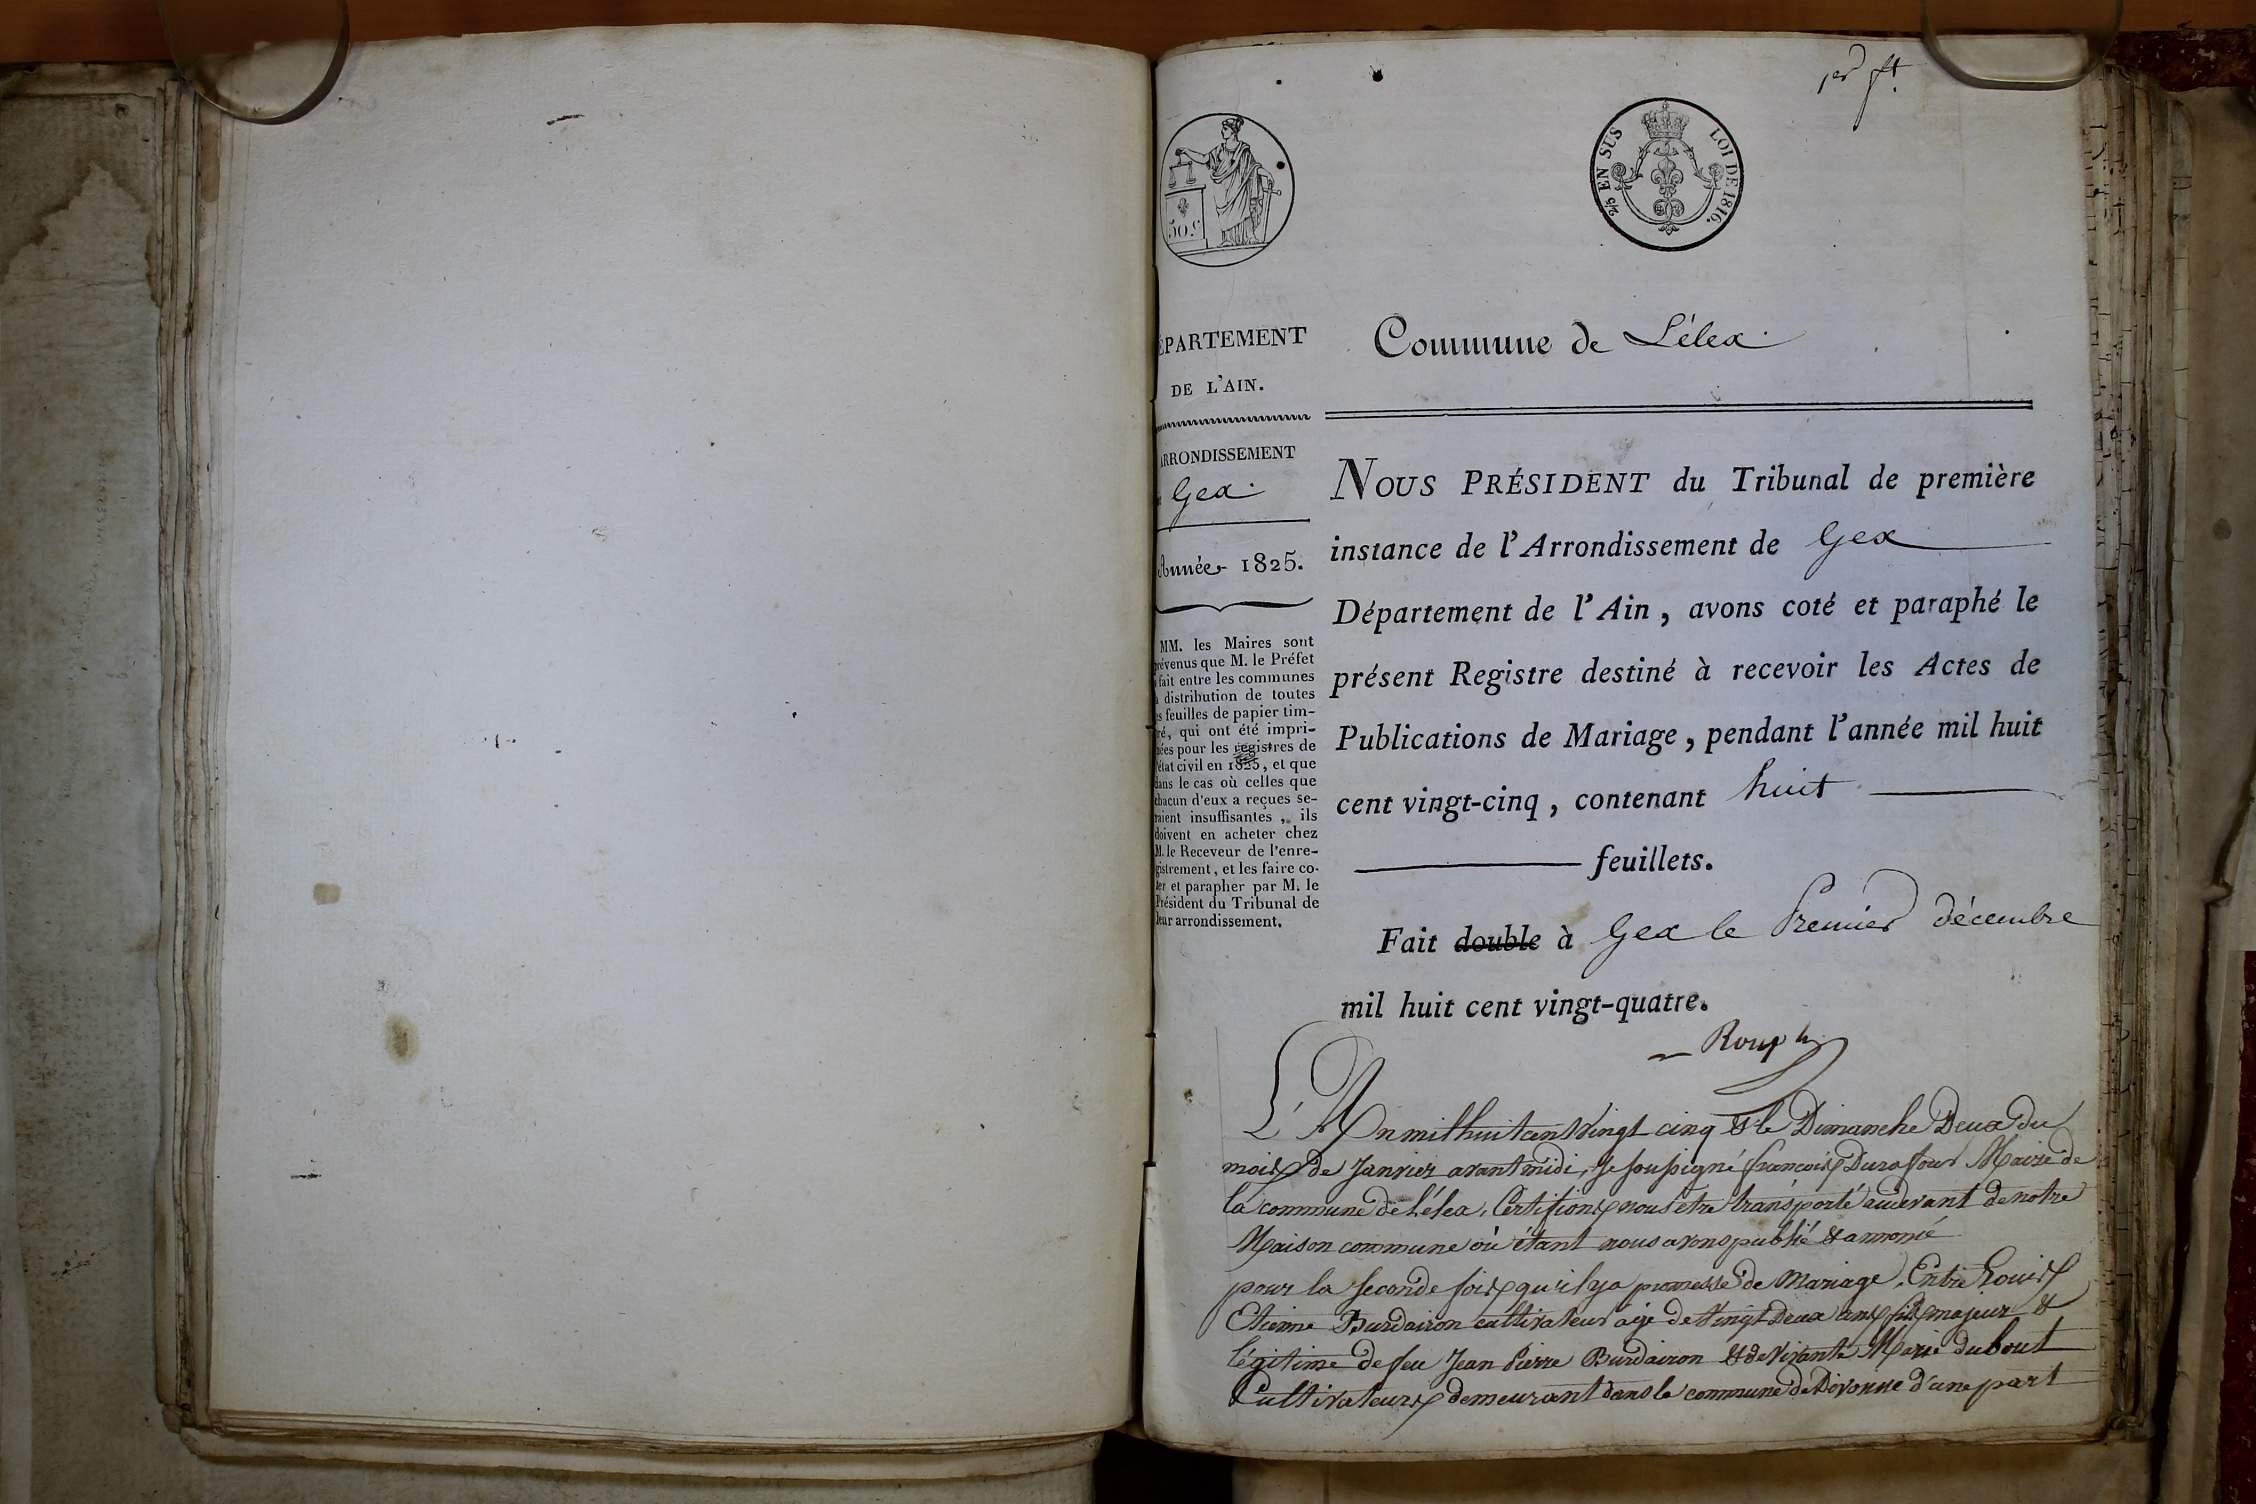 1er ft.
50 c
2/5 EN SUS LOI DE 1816.
ÉPARTEMENT
DE L'AIN.
ARRONDISSEMENT
Gex.
Année 1825.
MM. les Maires sont
prévenus que M. le Préfet
a fait entre les communes
la distribution de toutes
es feuilles de papier tim-
ré, qui ont été impri-
mées pour les registres de
l'état civil en 1825, et que
dans le cas où celles que
chacun d'eux a reçues se-
raient insuffisantes, ils
doivent en acheter chez
M. le Receveur de l'enre-
gistrement, et les faire co-
ter et parapher par M. le
Président du Tribunal de
leur arrondissement.
Commune de Lélex.
NOUS PRÉSIDENT du Tribunal de première
instance de l'Arrondissement de Gex
Département de l'Ain, avons coté et paraphé le
présent Registre destiné à recevoir les Actes de
Publications de Mariage, pendant l'année mil huit
cent vingt-cinq, contenant huit
feuillets.
Fait double à Gex le Premier décembre
mil huit cent vingt-quatre.
L'An mil huit cent vingt cinq & le Dimanche Deux du
mois de Janvier avant midi, Je soussigné françois Durafour Maire de
la commune de Lélex, Certifions nous etre transporté audevant de notre
Maison commune où étant nous avons publié & annoncé
pour la seconde fois qu'il y a promesse de mariage, Entre Louis
Etienne Burdairon cultivateur âgé de vingt Deux ans fils majeur &
légitime de feu Jean Pierre Burdairon & de vivante Marie dubout
Cultivateurs demeurant dans la commune de Divonne d'une part